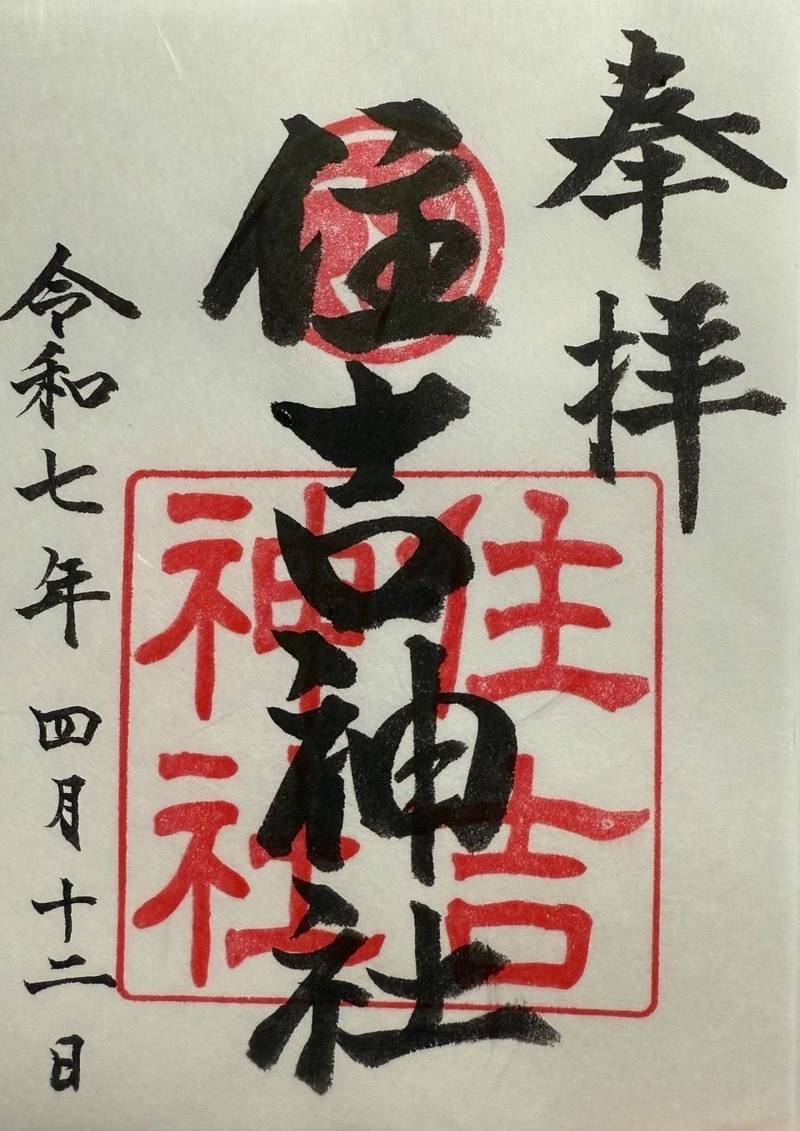 奉拝
住吉神社
住吉
神社
令和七年四月十二日